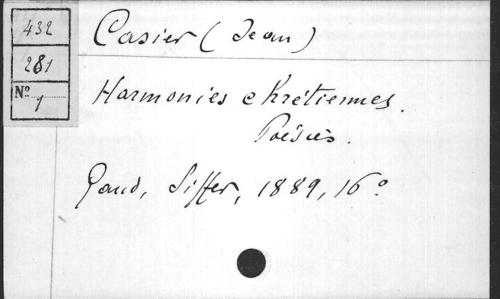 432
281
Nº 1
Casier (Jean)
Harmonies chrétiennes.
Poésies.
Gand, Siffer, 1889, 16º